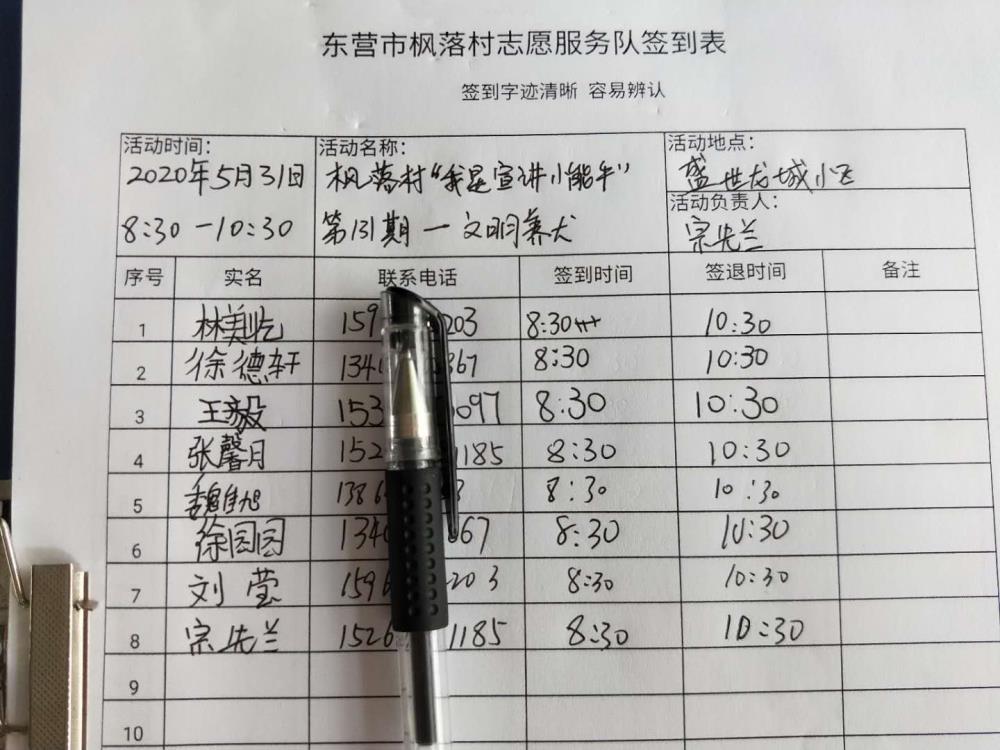 东营市枫落村志愿服务队签到表
签到字迹清晰 容易辨认
活动时间: 活动名称: 活动地点:
2020年5月31日 枫落村“我是宣讲小能手” 盛世龙城小区
活动负责人:
8:30-10:30 第131期-文明养犬 宗先兰
序号 实名 联系电话 签到时间 签退时间 备注
1 林美屹 159 203 8:30 10:30
2 徐德轩 134 867 8:30 10:30
3 王毅 153 097 8:30 10:30
4 张馨月 152 1185 8:30 10:30
5 魏 旭 1386 3 8:30 10:30
6 徐园园 1340 67 8:30 10:30
7 刘莹 1596 203 8:30 10:30
8 宗先兰 1526 1185 8:30 10:30
9
10